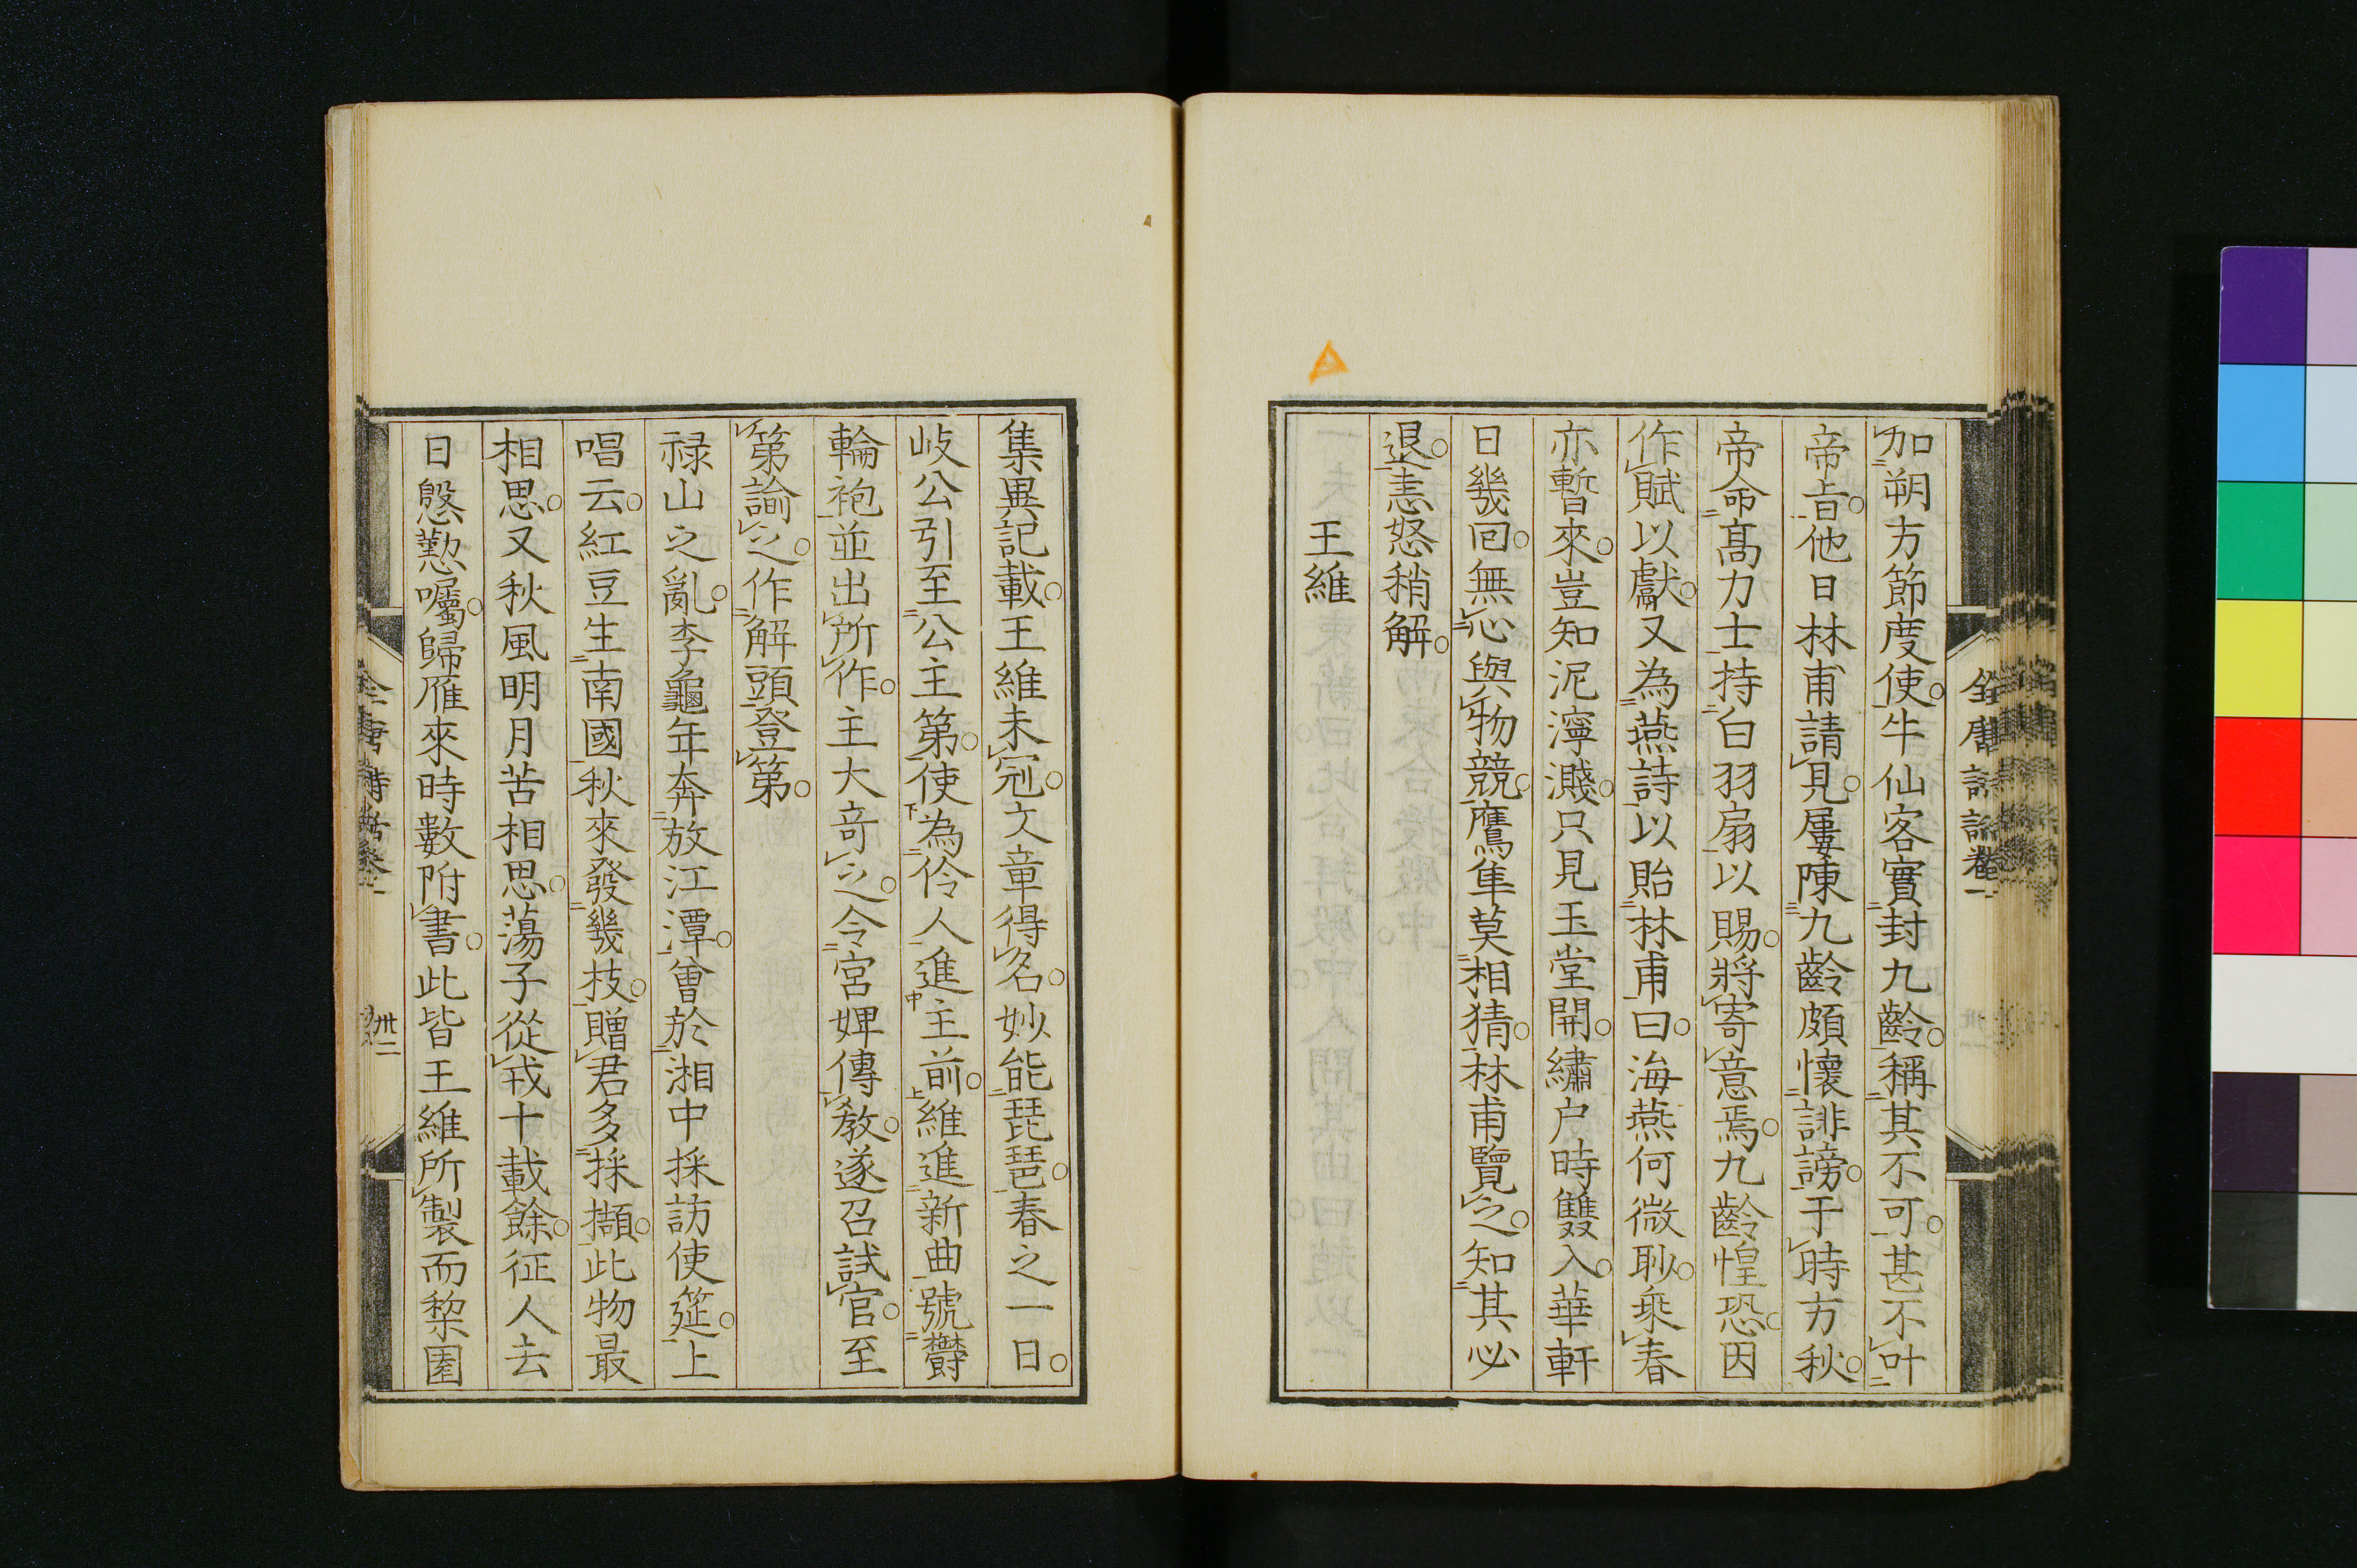 加朔方節度使。牛仙客實封九齡。稱其不可。甚不叶
帝旨。他日林甫請見。屢陳九齡頗懷誹謗。于時方秋。
帝命高力士持白羽扇以賜。將寄意焉。九齡惶恐。因
作賦以獻。又為燕詩以貽林甫曰。海燕何微眇。乘春
亦暫來。豈知泥滓濺。只見玉堂開。繡户時雙入。華軒
日幾回。無心與物競。鷹隼莫相猜。林甫覽之。知其必
退。恚怒稍解。
王維
集異記載。王維未冠。文章得名。妙能琵琶。春之一日。
岐公引至公主第。使為伶人進主前。維進新曲號欝
輪袍並出所作。主大奇之。令宮婢傳教。遂召試官。至
第諭之。作解頭登第。
禄山之亂。李龜年奔放江潭。曾於湘中採訪使筵。上
唱云。紅豆生南國秋來發幾枝。贈君多採擷。此物最
相思。又秋風明月苦相思。蕩子從戎十載餘。征人去
日慇懃囑。歸雁來時數附書。此皆王維所製而棃園
全唐詩話卷一
卅二